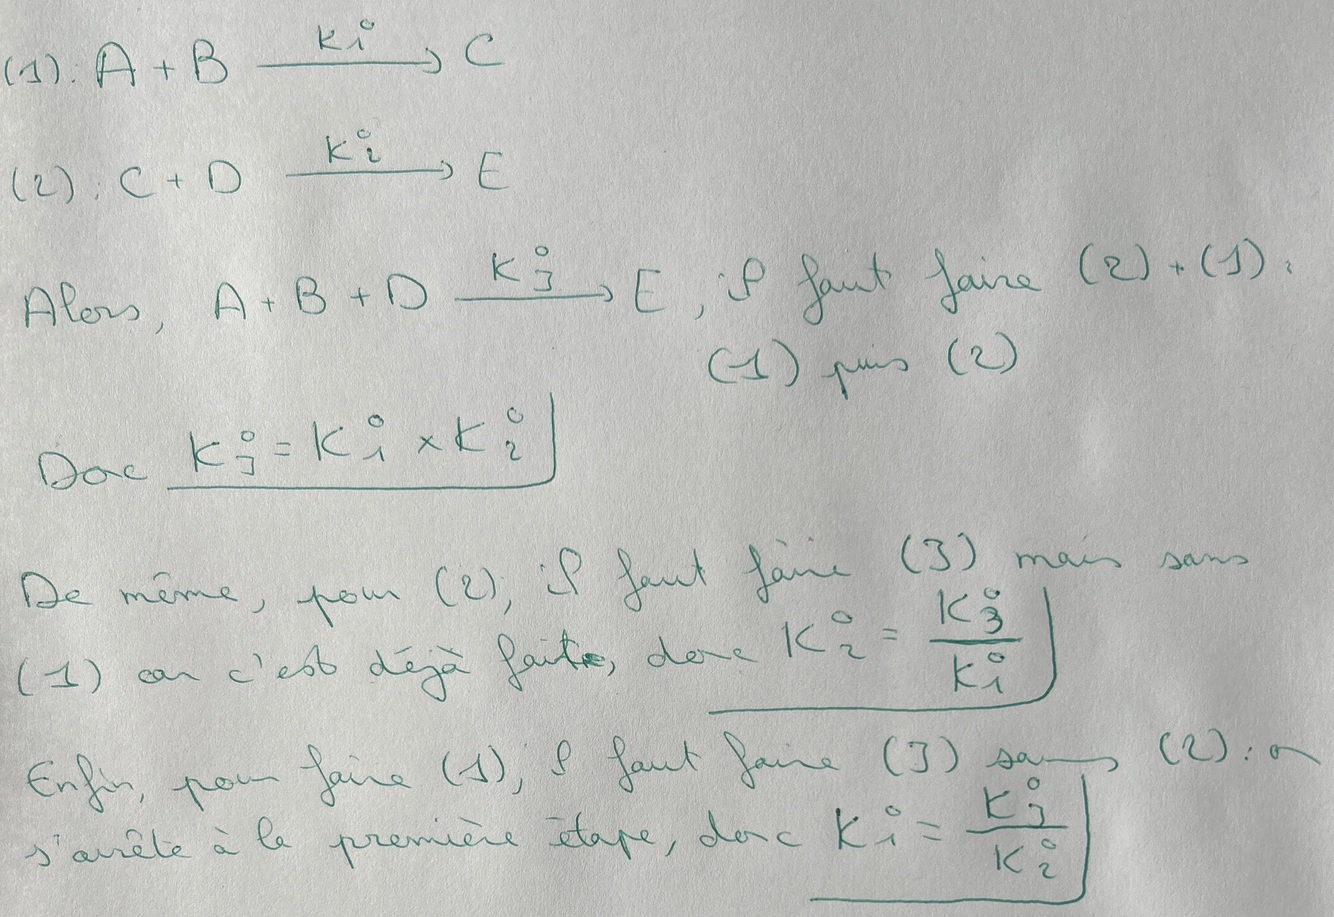 (1): A + B ⟶ C K₁°
(2): C + D ⟶ E K₂°
Alors, A + B + D ⟶ E, il faut faire (2) + (1): K₃°
(1) puis (2)
Donc K₃° = K₁° × K₂°
De même, pour (2), il faut faire (3) mais sans
(1) car c'est déjà faite, donc K₂° = K₃° / K₁°
Enfin, pour faire (1), il faut faire (3) sans (2): on
s'arrête à la première étape, donc K₁° = K₃° / K₂°